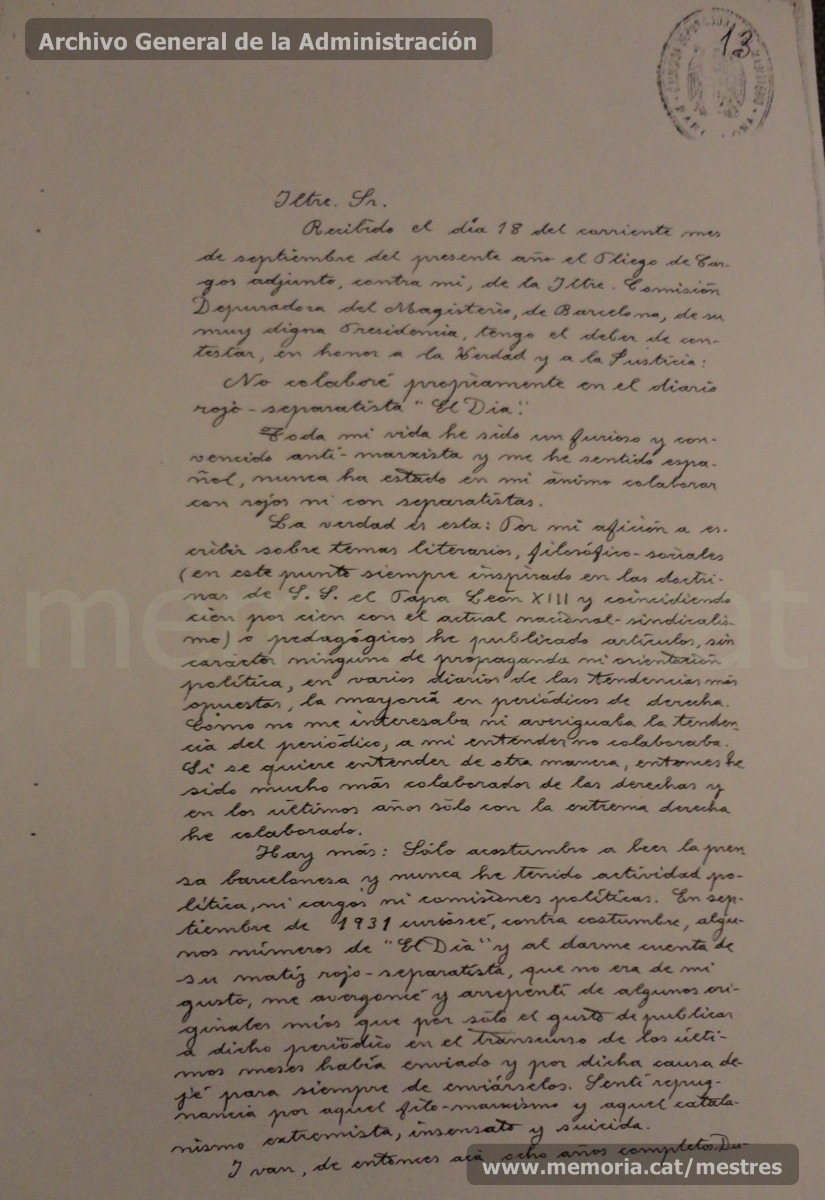 Archivo General de la Administración
13
Iltre. Sr.
Recibido el día 18 del corriente mes
de septiembre del presente año el Pliego de Car-
gos adjunto, contra mi, de la Iltre. Comisión
Depuradora del Magisterio, de Barcelona, de su
muy digna Presidencia, tengo el deber de con-
testar, en honor a la Verdad y a la Justicia:
No colaboré propiamente en el diario
rojo-separatista "El Dia".
Toda mi vida he sido un furioso y con-
vencido anti-marxista y me he sentido espa-
ñol, nunca ha estado en mi ánimo colaborar
con rojos ni con separatistas.
La verdad es esta: Por mi afición a es-
cribir sobre temas literarios, filosófico-sociales
(en este punto siempre inspirado en las doctri-
nas de S. S. el Papa León XIII y coincidiendo
cien por cien con el actual nacional-sindicalis-
mo) o pedagógicos he publicado artículos, sin
carácter ninguno de propaganda ni orientación
política, en varios diarios de las tendencias más
opuestas, la mayoría en periódicos de derecha.
Como no me interesaba ni averiguaba la tenden-
cia del periódico, a mi entender no colaboraba.
Si se quiere entender de otra manera, entonces he
sido mucho más colaborador de las derechas y
en los últimos años sólo con la extrema derecha
he colaborado.
Hay más: Sólo acostumbro a leer la pren-
sa barcelonesa y nunca he tenido actividad po-
lítica, ni cargos ni comisiones políticas. En sep-
tiembre de 1931 curioseé, contra costumbre, algu-
nos números de "El Dia" y al darme cuenta de
su matiz rojo-separatista, que no era de mi
gusto, me avergoncé y arrepentí de algunos ori-
ginales míos que por sólo el gusto de publicar
a dicho periódico en el transcurso de los últi-
mos meses había enviado y por dicha causa de-
jé para siempre de enviárselos. Sentí repug-
nancia por aquel filo-marxismo y aquel catala-
nismo extremista, insensato y suicida.
I van, de entonces acá ocho años completos. Du-
www.memoria.cat/mestres